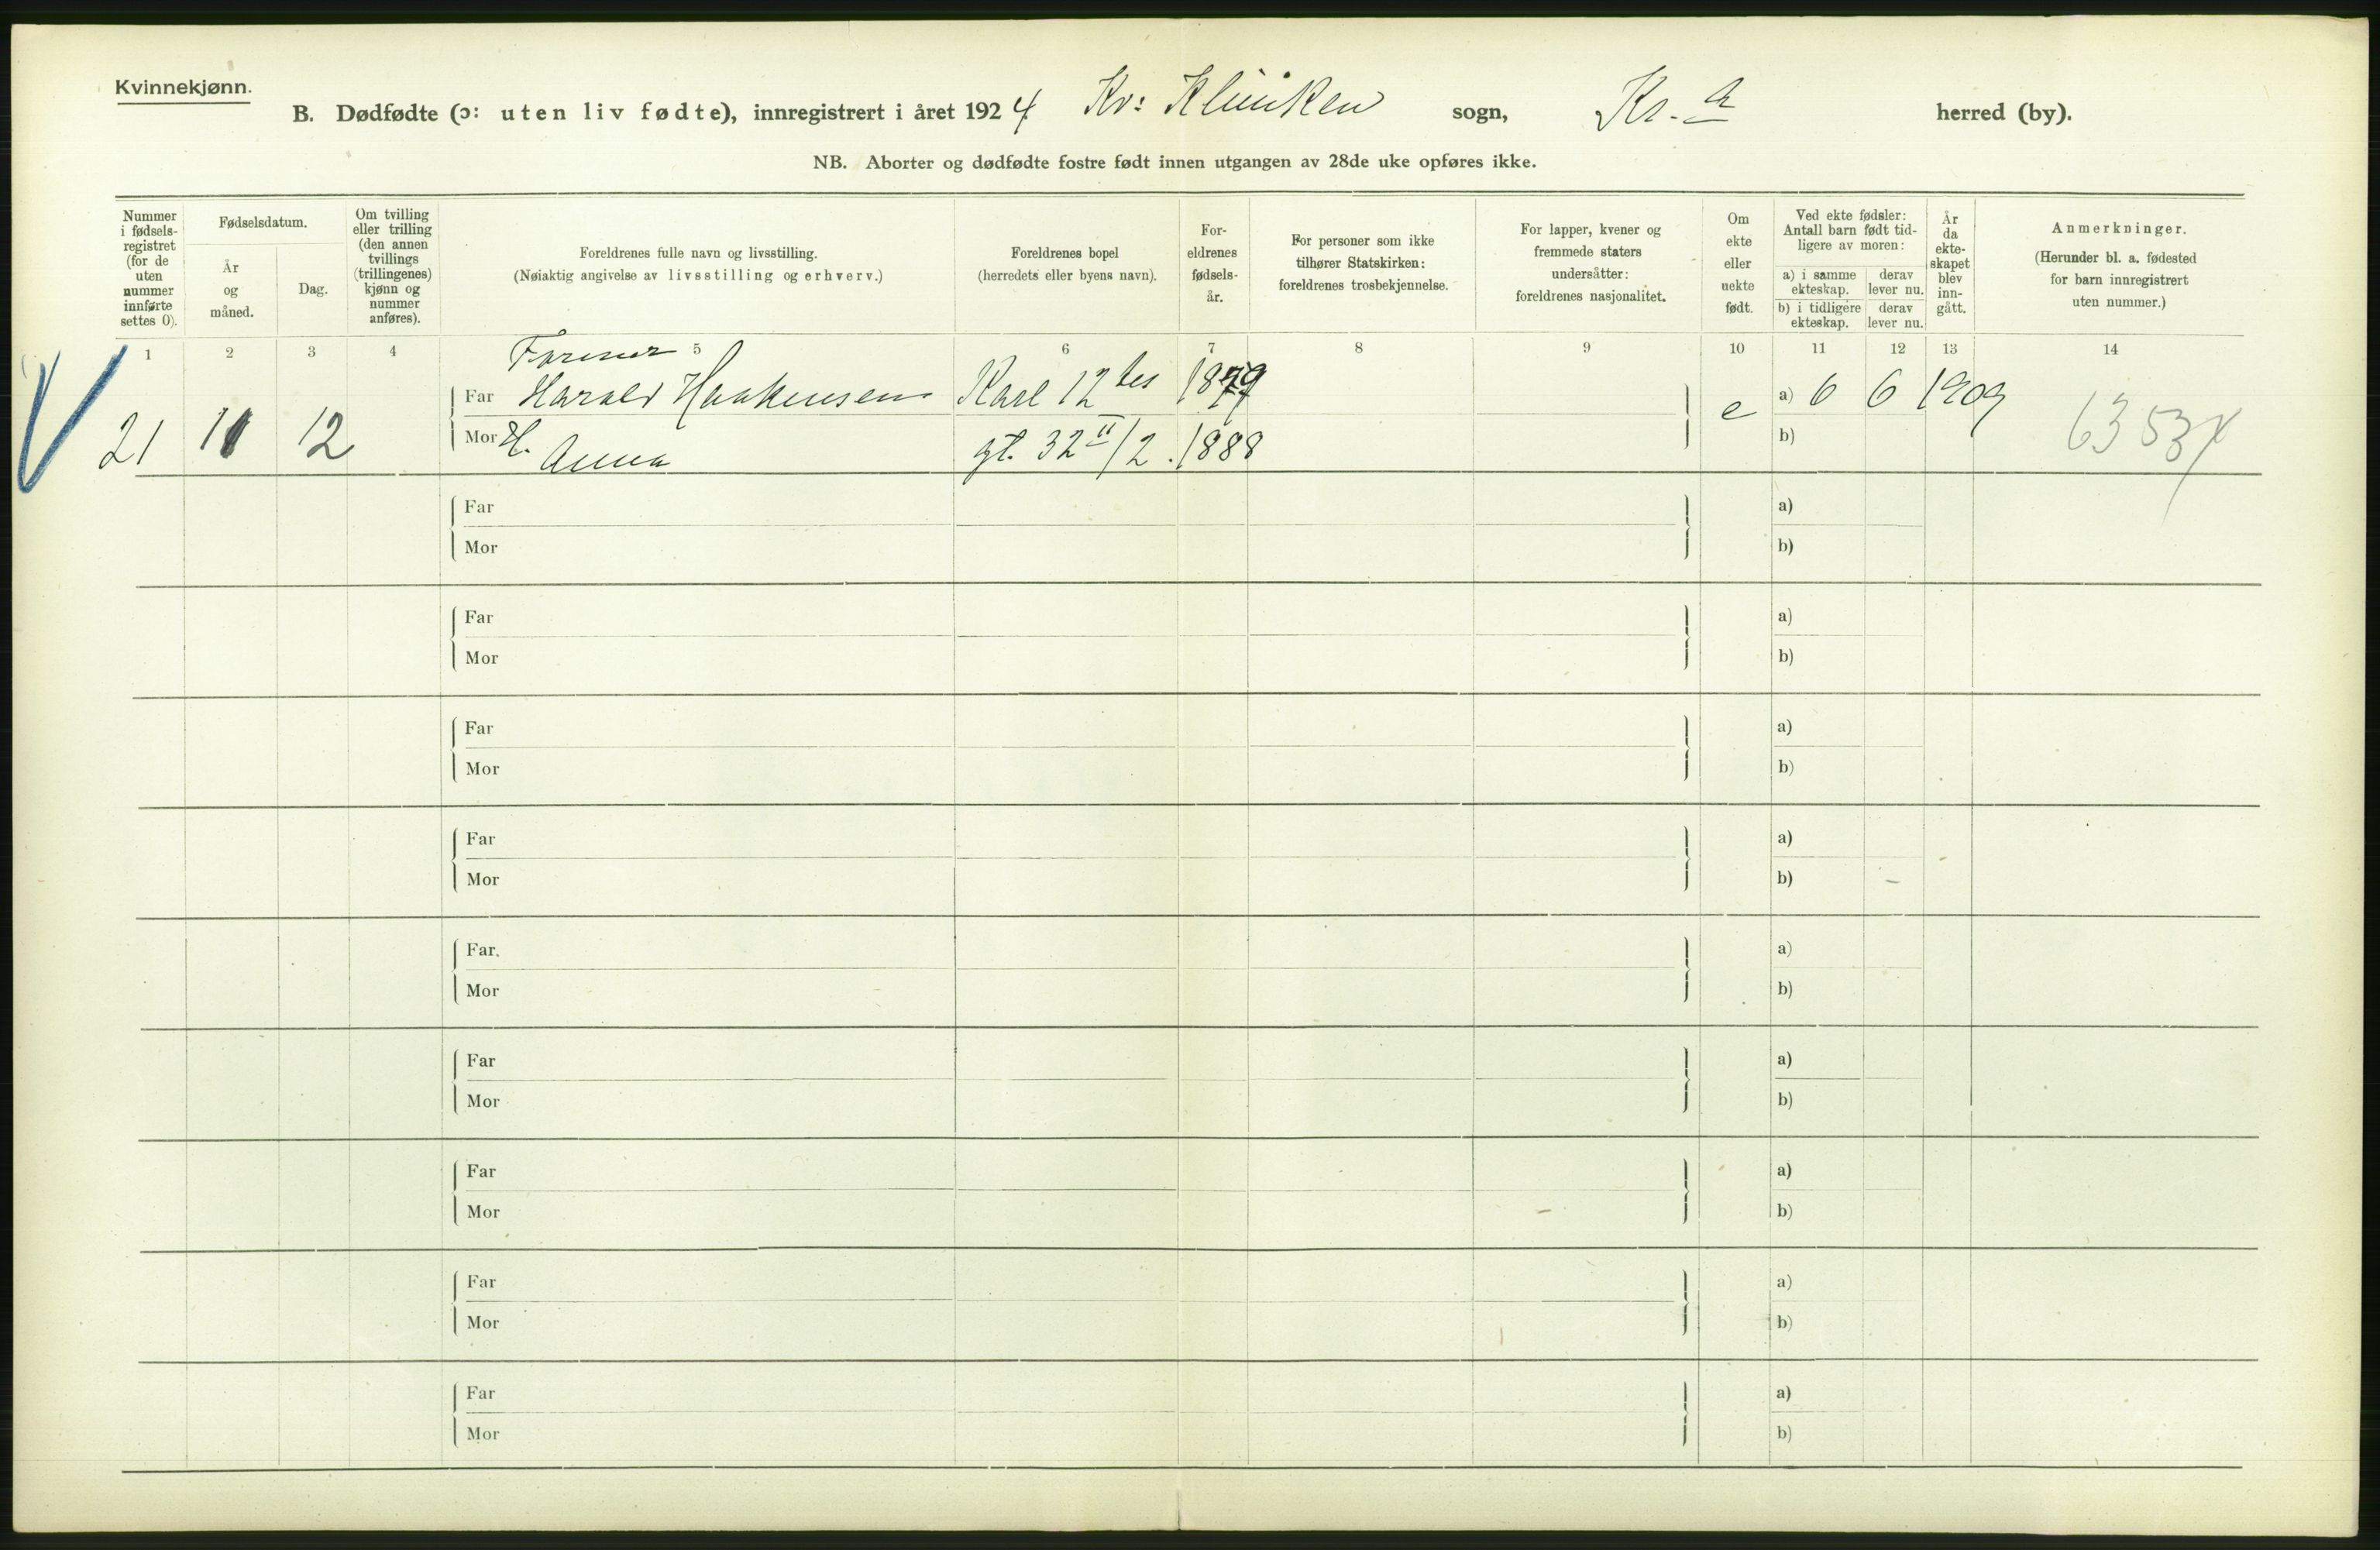 Kvinnekjønn.
B. Dødfødte (ɔ: uten liv fødte), innregistrert i året 1924 Kv: Kliniken sogn, Kr.a herred (by).
NB. Aborter og dødfødte fostre født innen utgangen av 28de uke opføres ikke.
Nummer i fødsels-registret (for de uten nummer innførte settes 0).
Fødselsdatum.
År og måned.
Dag.
Om tvilling eller trilling (den annen tvillings (trillingenes) kjønn og nummer anføres).
Foreldrenes fulle navn og livsstilling.
(Nøiaktig angivelse av livsstilling og erhverv.)
Foreldrenes bopel
(herredets eller byens navn).
For-eldrenes fødsels-år.
For personer som ikke tilhører Statskirken: foreldrenes trosbekjennelse.
For lapper, kvener og fremmede staters undersåtter: foreldrenes nasjonalitet.
Om ekte eller uekte født.
Ved ekte fødsler: Antall barn født tid-ligere av moren:
a) i samme ekteskap.
derav lever nu.
b) i tidligere ekteskap.
derav lever nu.
År da ekte-skapet blev inn-gått.
Anmerkninger.
(Herunder bl. a. fødested for barn innregistrert uten nummer.)
1 2 3 4 5 6 7 8 9 10 11 12 13 14
Former
Far Harald Haakensen Karl 12tes 1879 a) 6 6 1909
21 11 12 e 6353
Mor H. Anna gt. 32 II/2. 1888 b)
Far a)
Mor b)
Far a)
Mor b)
Far a)
Mor b)
Far a)
Mor b)
Far. a)
Mor b)
Far a)
Mor b)
Far a)
Mor b)
Far a)
Mor b)
Far a)
Mor b)